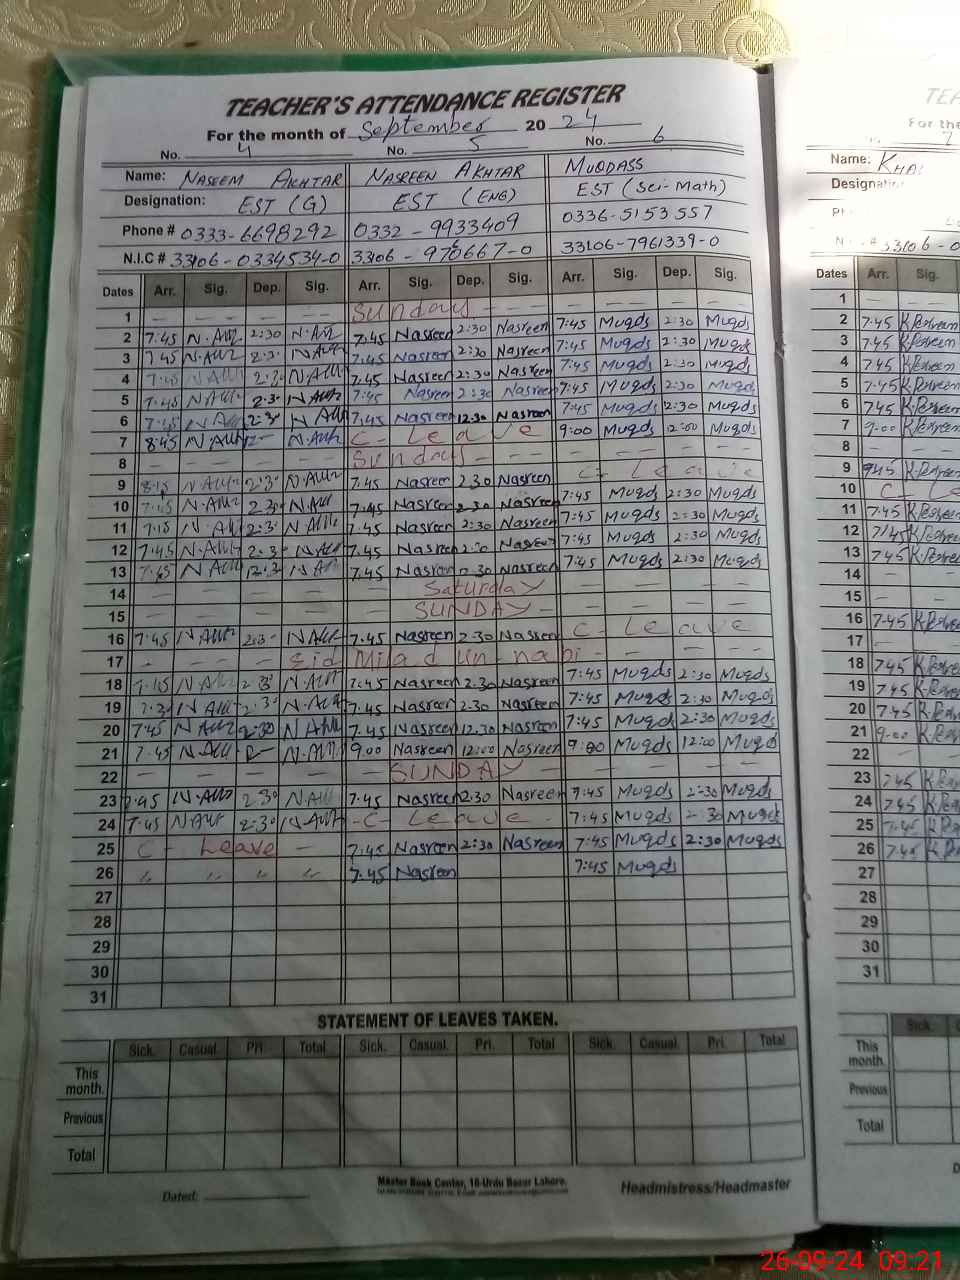 TEACHER'S ATTENDANCE REGISTER
For the month of September 2024
No. 4 No. 5 No. 6
Name: NASEEM AKHTAR NASREEN AKHTAR MUQDASS
Designation: EST (G) EST (ENG) EST (Sci-Math)
Phone # 0333-6698292 0332-9933409 0336-5153557
N.I.C # 33106-0334534-0 33106- 33106-7961339-0
Dates Arr. Sig. Dep. Sig. Arr. Sig. Dep. Sig. Arr. Sig. Dep. Sig.
1 Sunday
2 7:45 2:30 7:45 Nasreen 2:30 Nasreen 7:45 Muqds 2:30 Muqds
3 7:45 7:45 Nasreen 2:30 Nasreen 7:45 Muqds 2:30 Muqds
4 7:45 7:45 Nasreen 2:30 Nasreen 7:45 Muqds 2:30 Muqds
5 7:45 7:45 Nasreen 2:30 Nasreen 7:45 Muqds 2:30 Muqds
6 7:45 7:45 Nasreen 12:30 Nasreen 7:45 Muqds 2:30 Muqds
7 8:45 C- Leave 9:00 Muqds 12:00 Muqds
8 Sunday
9 8:15 7:45 Nasreen 2:30 Nasreen C- Leave
10 7:45 Nasreen 2:30 Nasreen 7:45 Muqds 2:30 Muqds
11 7:45 Nasreen 2:30 Nasreen 7:45 Muqds 2:30 Muqds
12 7:45 7:45 Nasreen 2:30 Nasreen 7:45 Muqds 2:30 Muqds
13 7:45 7:45 Nasreen 12:30 Nasreen 7:45 Muqds 2:30 Muqds
14 Saturday
15 SUNDAY
16 7:45 7:45 Nasreen 2:30 Nasreen C- Leave
17 Eid Milad un-nabi
18 7:45 Nasreen 2:30 Nasreen 7:45 Muqds 2:30 Muqds
19 7:45 Nasreen 2:30 Nasreen 7:45 Muqds 2:30 Muqds
20 7:45 2:30 7:45 Nasreen 12:30 Nasreen 7:45 Muqds 2:30 Muqds
21 7:45 9:00 Nasreen 12:00 Nasreen 9:00 Muqds 12:00 Muqd
22 SUNDAY
23 7:45 2:30 7:45 Nasreen 2:30 Nasreen 7:45 Muqds 2:30 Muqds
24 7:45 2:30 C- Leave 7:45 Muqds 2:30 Muqds
25 C- Leave 7:45 Nasreen 2:30 Nasreen 7:45 Muqds 2:30 Muqds
26 " " " " 7:45 Nasreen 7:45 Muqds
27
28
29
30
31
STATEMENT OF LEAVES TAKEN.
Sick. Casual. Pri. Total Sick. Casual. Pri. Total Sick. Casual. Pri. Total
This month.
Previous
Total
Master Book Center, 16-Urdu Bazar Lahore.
Dated: Headmistress/Headmaster
TEA
For the
7
Name: KHAL
Designation
33106-0
Dates Arr. Sig.
1
2 7:45
3 7:45
4 7:45
5 7:45
6 7:45
7 9:00
8
9
10 C- Le
11 7:45
12 7:45
13 7:45
14
15
16 7:45
17
18 7:45
19 7:45
20 7:45
21 9:00
22
23 7:45
24 7:45
25 7:45
26 7:45
27
28
29
30
31
Sick.
This month.
Previous
Total
26-09-24 09:21